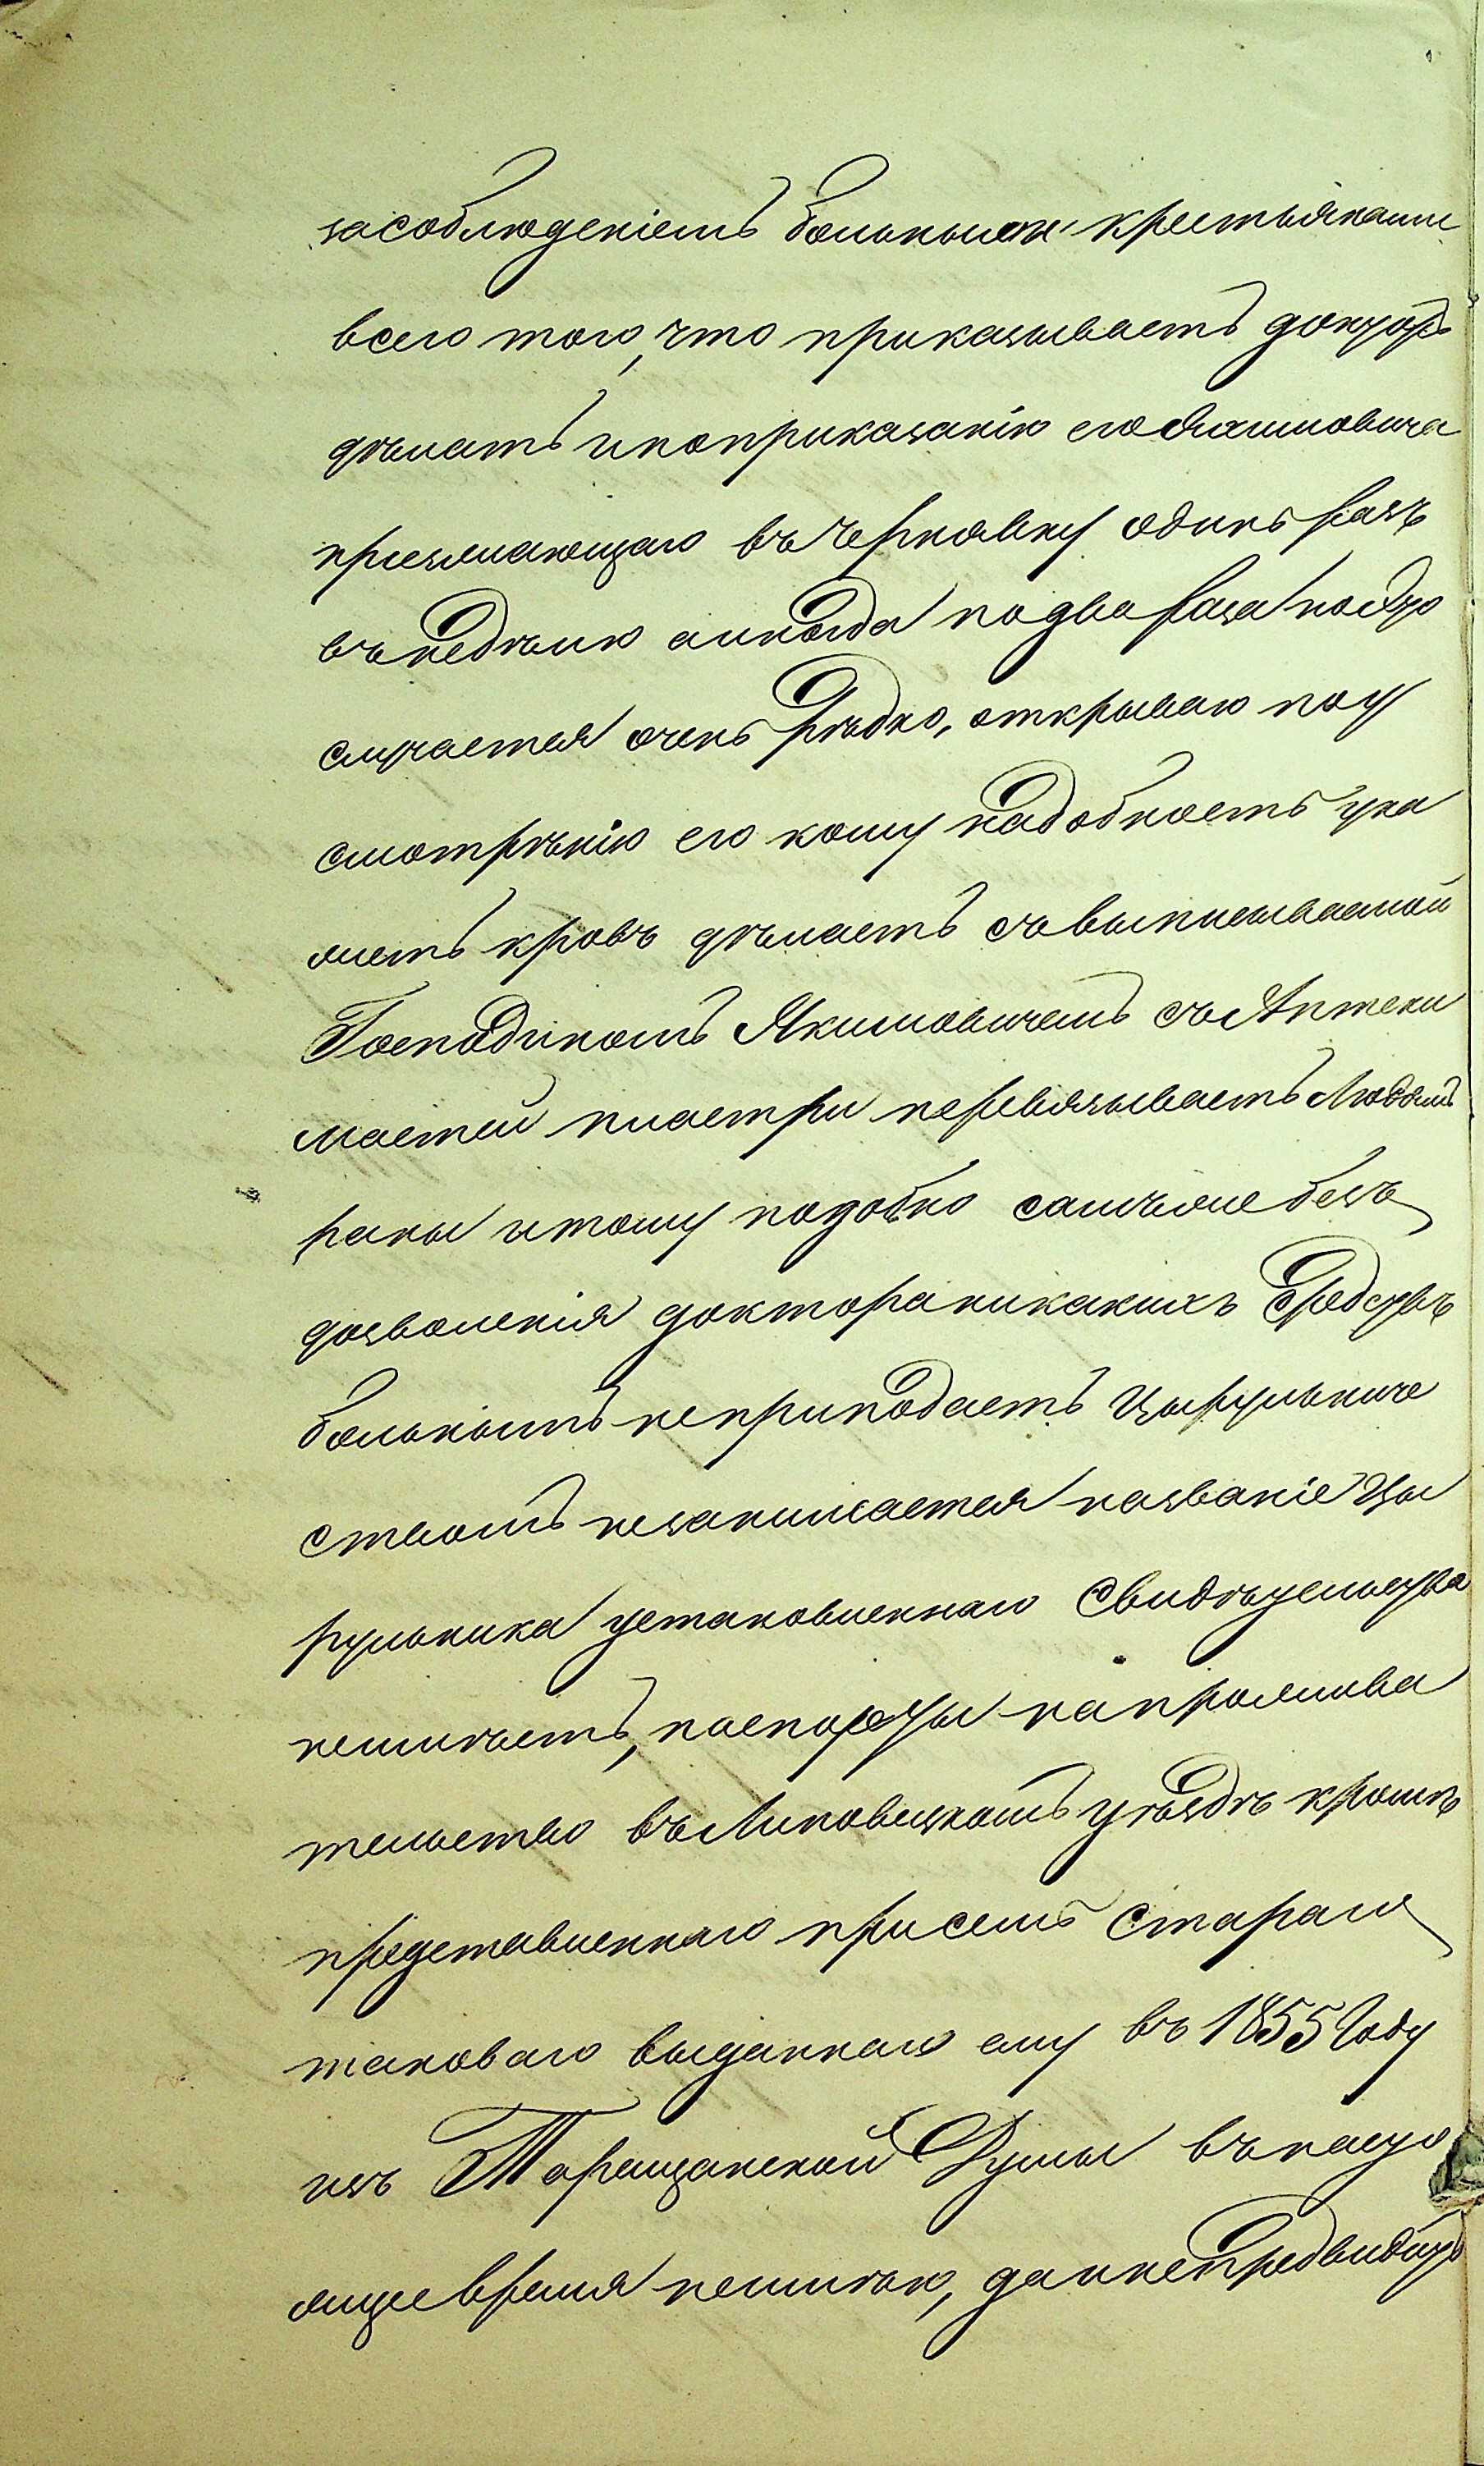 засоблюденіемъ больными крестьянами
всего того, что приказываетъ докторъ
дѣлать ипоприказанію его Якимовича
приезжающаго въ Чернявку одинъ разъ
въ недѣлю аиногда подва раза ноэто
случается очень рѣдко, открываю поу
смотрѣнію его кому надобность ука
жетъ кровъ дѣлаетъ съ выписываемой
Господиномъ Якимовичемъ съ Аптеки
мастей пластри перевязываетъ Людямъ
раны итому подобно самъже безъ
дозволенія доктораникакихъ Средствъ
больнымъ неприподаетъ Цырульниче
ствомъ незанимается названіе Цы
рульника установленнаго Свидѣтельства
неимѣетъ, паспорты напрожива
тельство въ Липовецкомъ уѣздѣ кромѣ
представленнаго присемъ Стараго
таковаго выданнаго ему въ 1855 Году
изъ Таращанской Думы въ насто
ящее время неимѣю, да инепредвидитъ